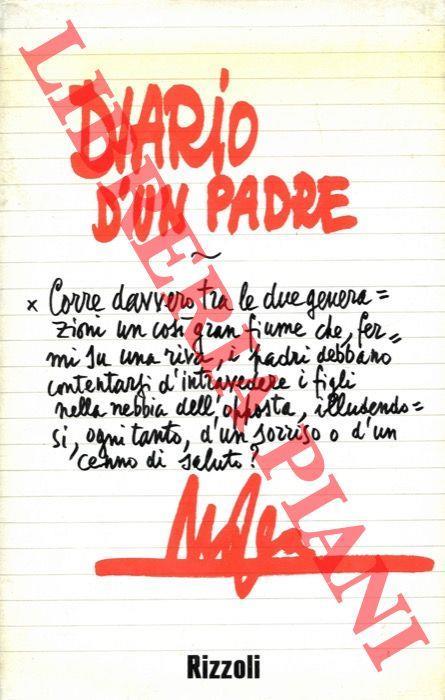 DIARIO
D'UN PADRE
~
x Corre davvero tra le due genera=
zioni un così gran fiume che, fer=
mi su una riva, i padri debbano
contentarsi d'intravedere i figli
nella nebbia dell'opposta, illudendo=
si, ogni tanto, d'un sorriso o d'un
cenno di saluto?
Rizzoli
LIBRERIA PIANI